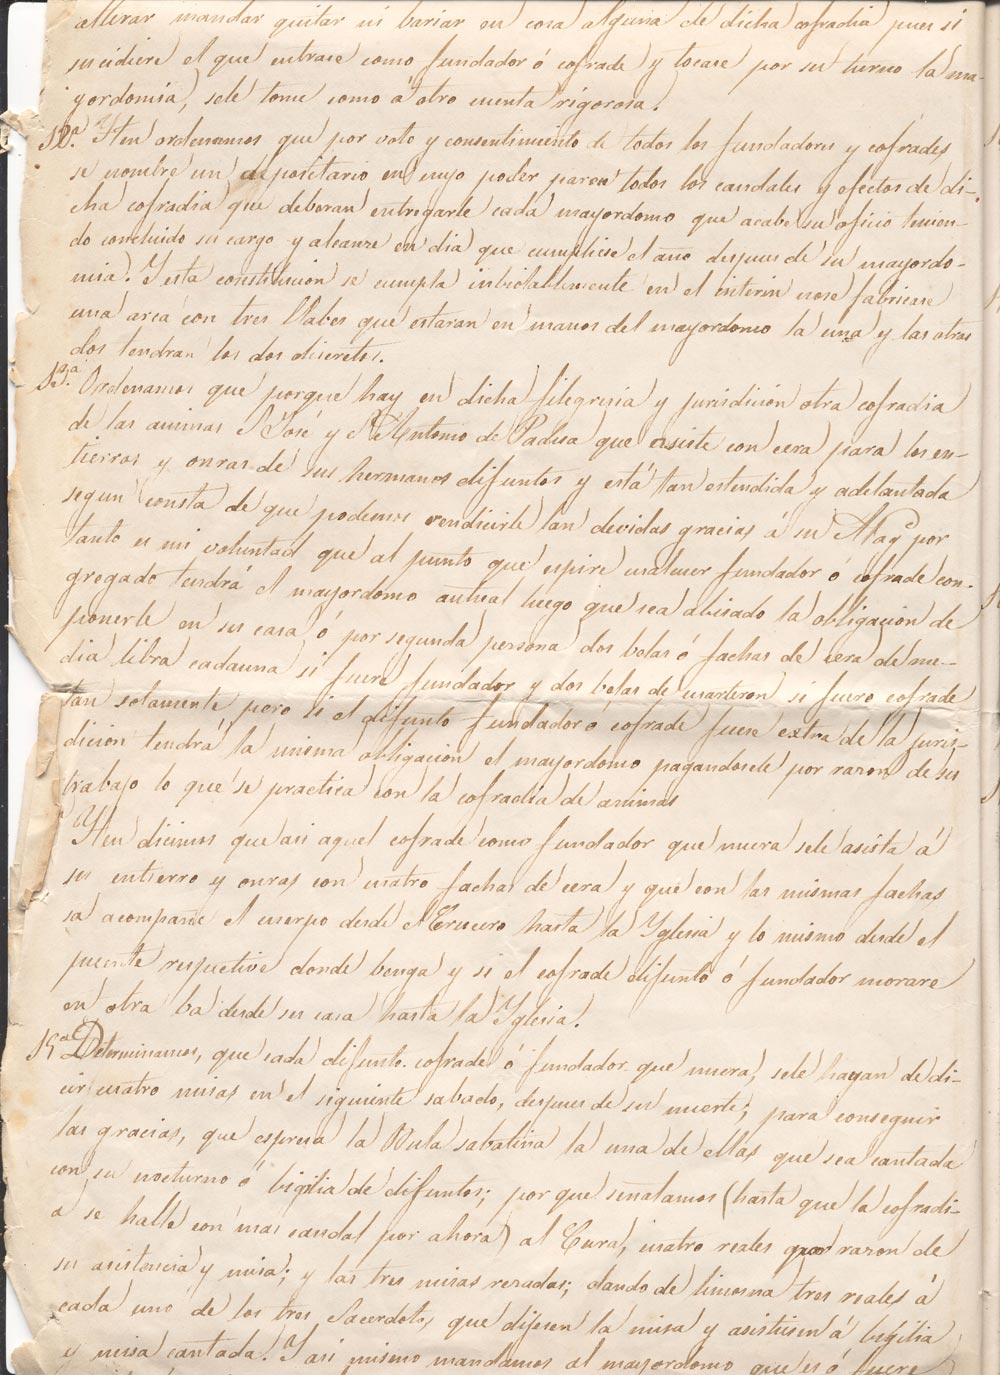 alterar mandar quitar ni bariar en cosa alguna de dicha cofradia pues si
sucidiere el que entrare como fundador ó cofrade y tocare por su turno la ma-
yordomia, sele tome como á otro cuenta rigorosa.
12.ª Yten ordenamos que por voto y consentimiento de todos los fundadores y cofrades
se nombre un depocitario en cuyo poder paren todos los caudales y efectos de di-
cha cofradia que deberan entregarle cada mayordomo que acabe su oficio hicien-
do concluido su cargo y alcanze en dia que cumpliese el año despues de su mayordo-
mia. Y esta constitucion se cumpla inbiolablemente en el interin nose fabricase
una arca con tres llabes que estaran en manos del mayordomo la una y las otras
dos tendran los dos discretos.
13.ª Ordenamos que porque hay en dicha filegresia y jurisdicion otra cofradia
de las animas S José y S Antonio de Padua que asiste con cera para los en-
tierros y onras de sus hermanos difuntos y está tan estendida y adelantada
segun consta de que podemos rendicirle las devidas gracias á su Mag por
tanto es mi voluntad que al punto que espire cualcuer fundador ó cofrade con-
gregado tendrá el mayordomo autual luego que sea abisado la obligacion de
ponerle en su casa ó por segunda persona dos belas ó fachas de cera de me-
dia libra cadauna si fuere fundador y dos belas de cuarteron si fuero cofrade
tan solamente pero si el difunto fundador o cofrade fuese extra de la juris-
dicion tendrá la misma obligacion el mayordomo pagandosele por razon de su
trabajo lo que se practica con la cofradia de animas
Yten dicimos que asi aquel cofrade como fundador que muera sele asista á
su entierro y onras con cuatro fachas de cera y que con las mismas fachas
sa acompañe el cuerpo desde el Crucero hasta la Yglesia y lo mismo desde el
puente respective donde benga y si el cofrade difunto ó fundador morare
en otra ba desde su casa hasta la Yglesia.
15ª Determinamos, que cada difunto cofrade ó fundador que muera, sele hagan de di-
cir cuatro misas en el siguiente sabado, despues de su muerte; para conseguir
las gracias, que espresa la Bula sabatina la una de ellas que sea cantada
con su nocturno ó bigilia de difuntos; por que señalamos (hasta que la cofradi-
a se halle con mas caudal por ahora) al Cura, cuatro reales por razon de
su asistencia y misa; y las tres misas rezadas; dando de limosna tres reales á
cada uno de los tres Sacerdotes, que dijesen la misa y asistiesen á bigilia
y misa cantada. Y asi mismo mandamos al mayordomo que es ó fuere